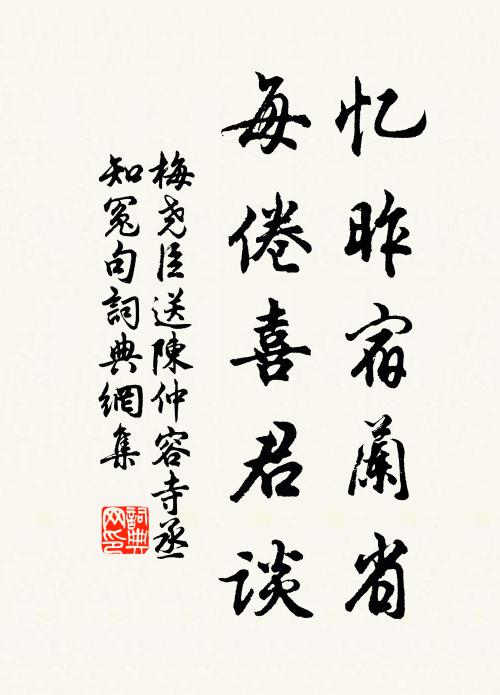 忆昨宿蘭省
每倦喜君談
梅尧臣送陳仲容寺丞
知冤句詞典網集
詞典网印